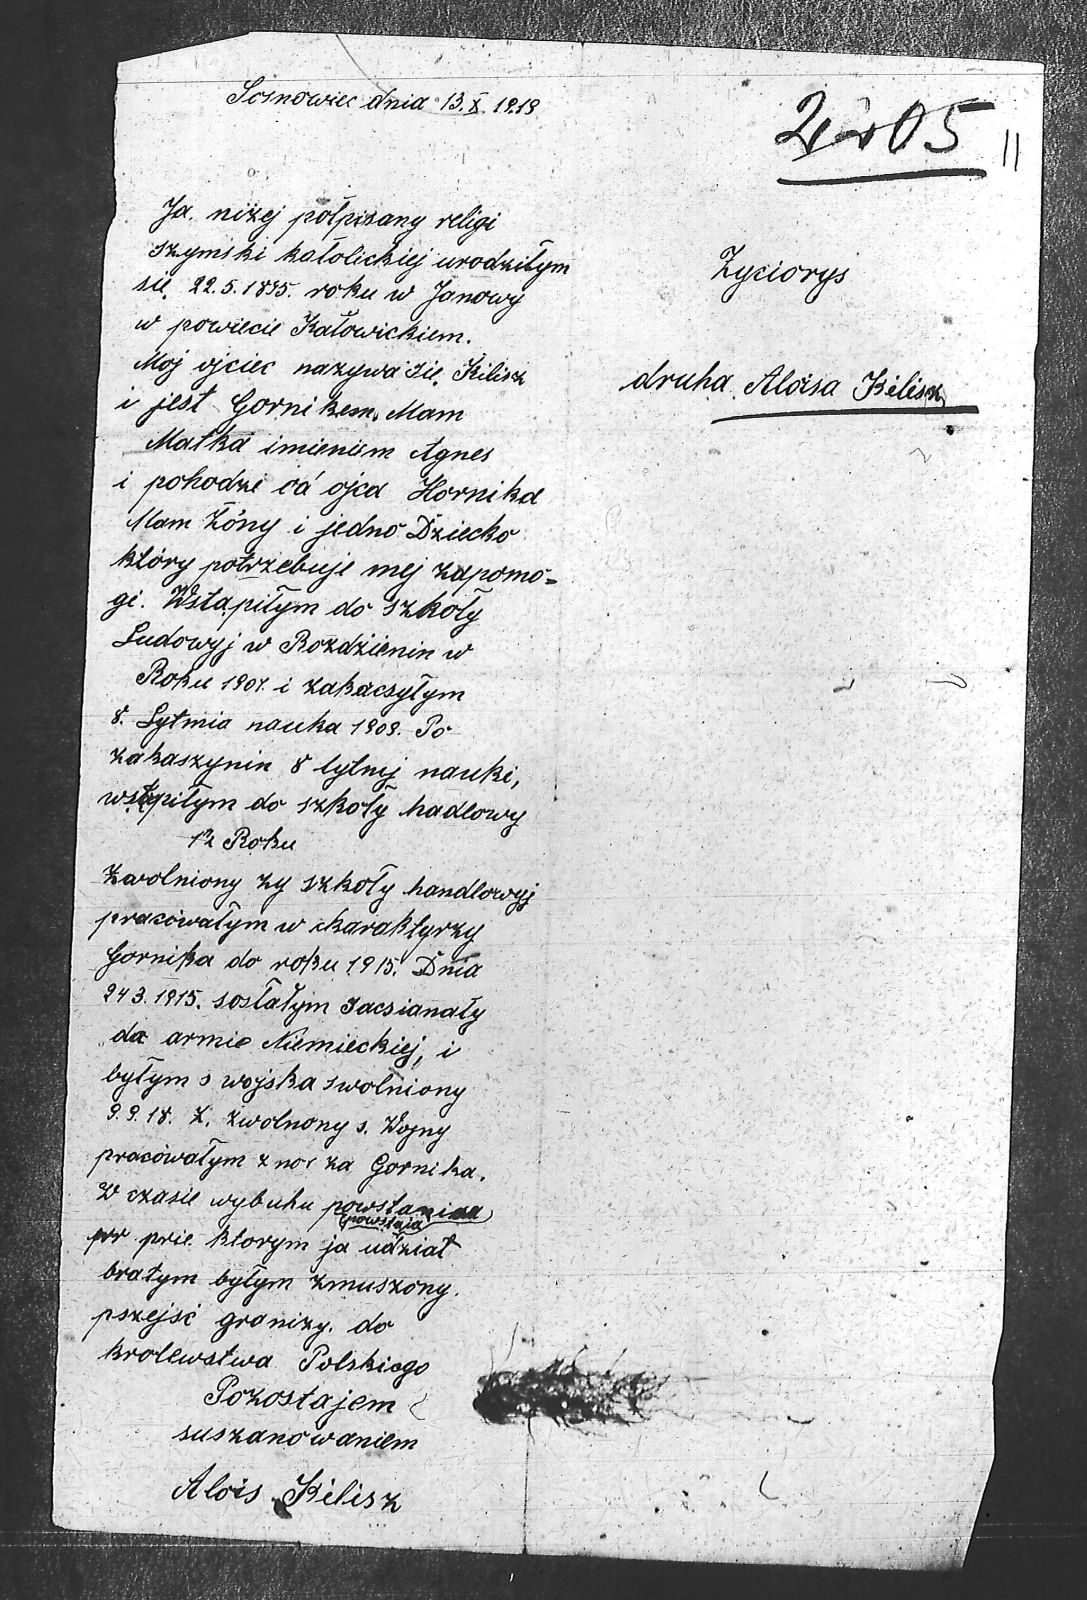 Sosnowiec dnia 13.X.1919
2205
11
Ja. niżej połpisany religi
szymski katolickiej urodziłym
się 22.5.1895. roku w Janowy
w powiecie Katowickiem.
Moj ojciec nazywa się Kilisz
i jest Gornikem. Mam
Matka imieniem Agnes
i pohodzi od ojca Hornika
Mam Żóny i jedno Dziecko
który potrzebuje mej zapomo=
gi. Wstąpiłym do szkoły
Ludowyj w Rozdźienin w
Roku 1901. i zakacsyłym
8. Lytmia nauka 1909. Po
zakaszynin 8 lytnij nauki,
wstąpiłym do szkoły hadlowy
1½ Roku
Zwolniony zy szkoły handlowyj
pracowałym w charaktyrzy
Gornika do roku 1915. Dnia
24 3. 1915. sostałym zacsianały
do armie Niemieckiej, i
byłym s wojska swolniony
9.9.18. Z. zwolnony s. Wojny
pracówałym znor za Gornika.
W czasie wybuhu powstaniaa
(powstaia)
pr prie ktorym ja udział
brałym byłym zmuszony.
pszejść granizy. do
krolewstwa Polskiego
Pozostajem
suszanowaniem
Alois Kilisz
Zyciorys
druha Aloisa Kilisz